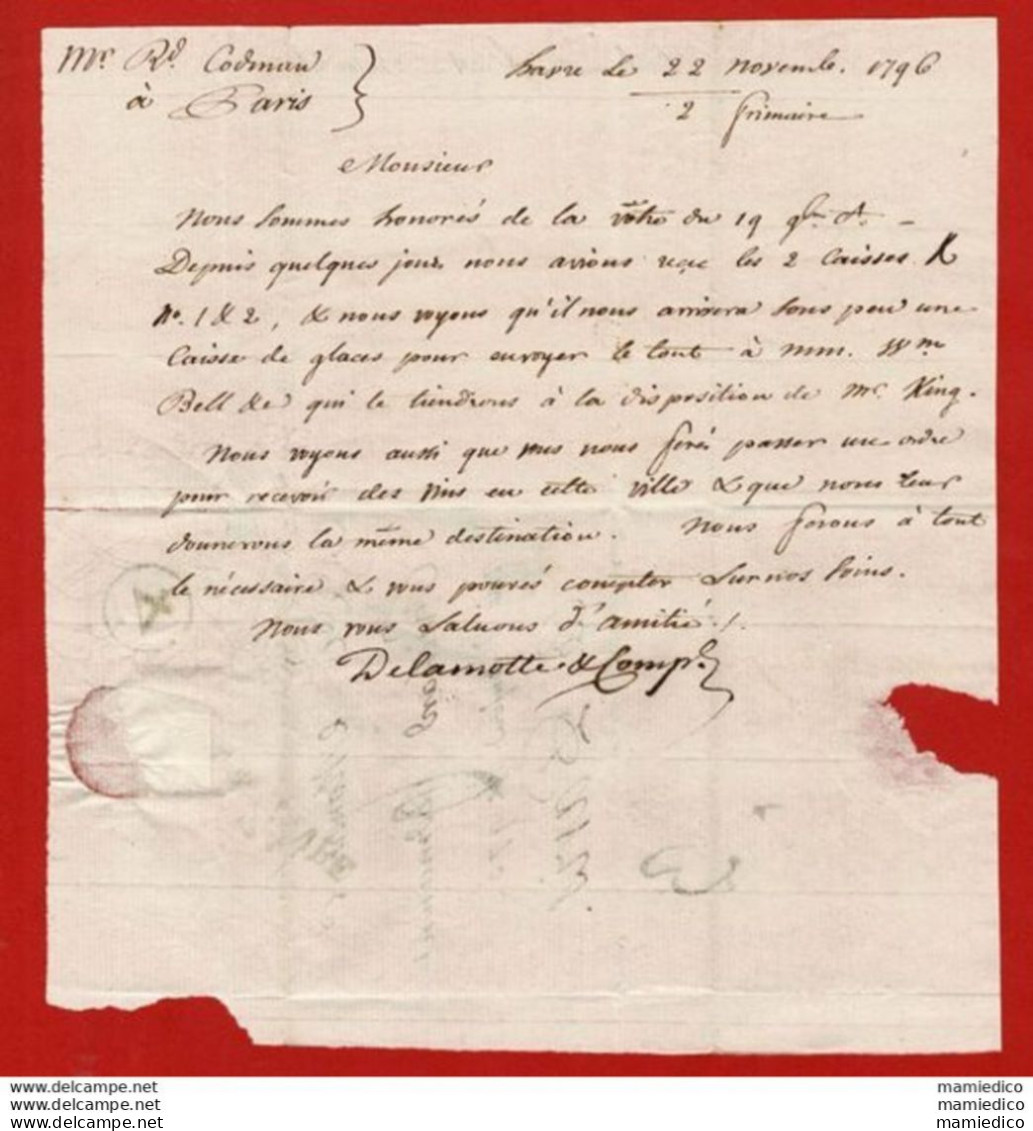 Mr. Rd. Codman
à Paris
havre le 22 novembr. 1796
2 frimaire
Monsieur
Nous sommes honorés de la vôtre du 19 9bre dr. -
Depuis quelques jours nous avions reçu les 2 Caisses K
No. 1 & 2, & nous voyons qu'il nous arrivera sous peu une
Caisse de glaces pour envoyer le tout à mm. Wm
Bell & Ce qui le tiendrons à la disposition de Mr. King.
Nous voyons aussi que vous nous ferés passer un ordre
pour recevoir des vins en cette ville & que nous leur
donnerons la même destination. Nous ferons à tout
le nécessaire & vous pourés compter sur nos soins.
Nous vous saluons d'amitié /.
Delamotte & Comp.
mamiedico
mamiedico
mamiedico